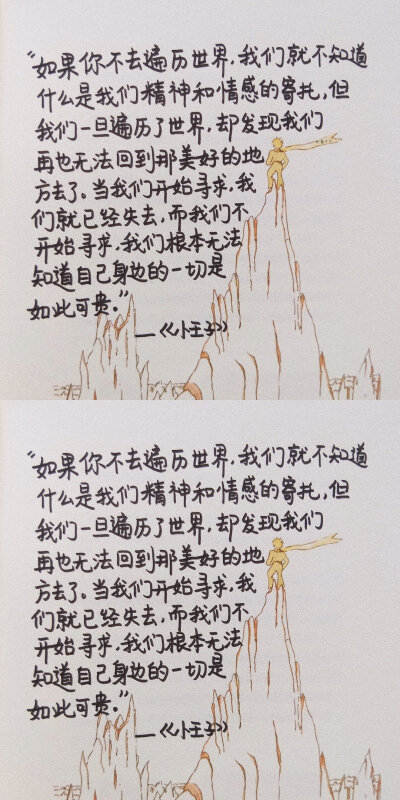 “如果你不去遍历世界,我们就不知道
什么是我们精神和情感的寄托,但
我们一旦遍历了世界,却发现我们
再也无法回到那美好的地
方去了。当我们开始寻求,我
们就已经失去,而我们不
开始寻求,我们根本无法
知道自己身边的一切是
如此可贵。”
—《小王子》
“如果你不去遍历世界,我们就不知道
什么是我们精神和情感的寄托,但
我们一旦遍历了世界,却发现我们
再也无法回到那美好的地
方去了。当我们开始寻求,我
们就已经失去,而我们不
开始寻求,我们根本无法
知道自己身边的一切是
如此可贵。”
—《小王子》